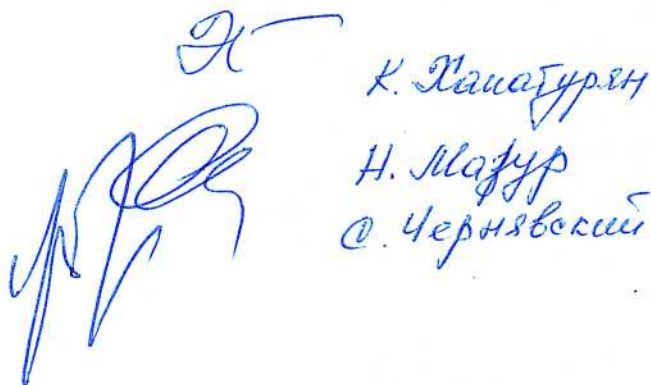 К. Ханатурян
Н. Мазур
С. Чернявский